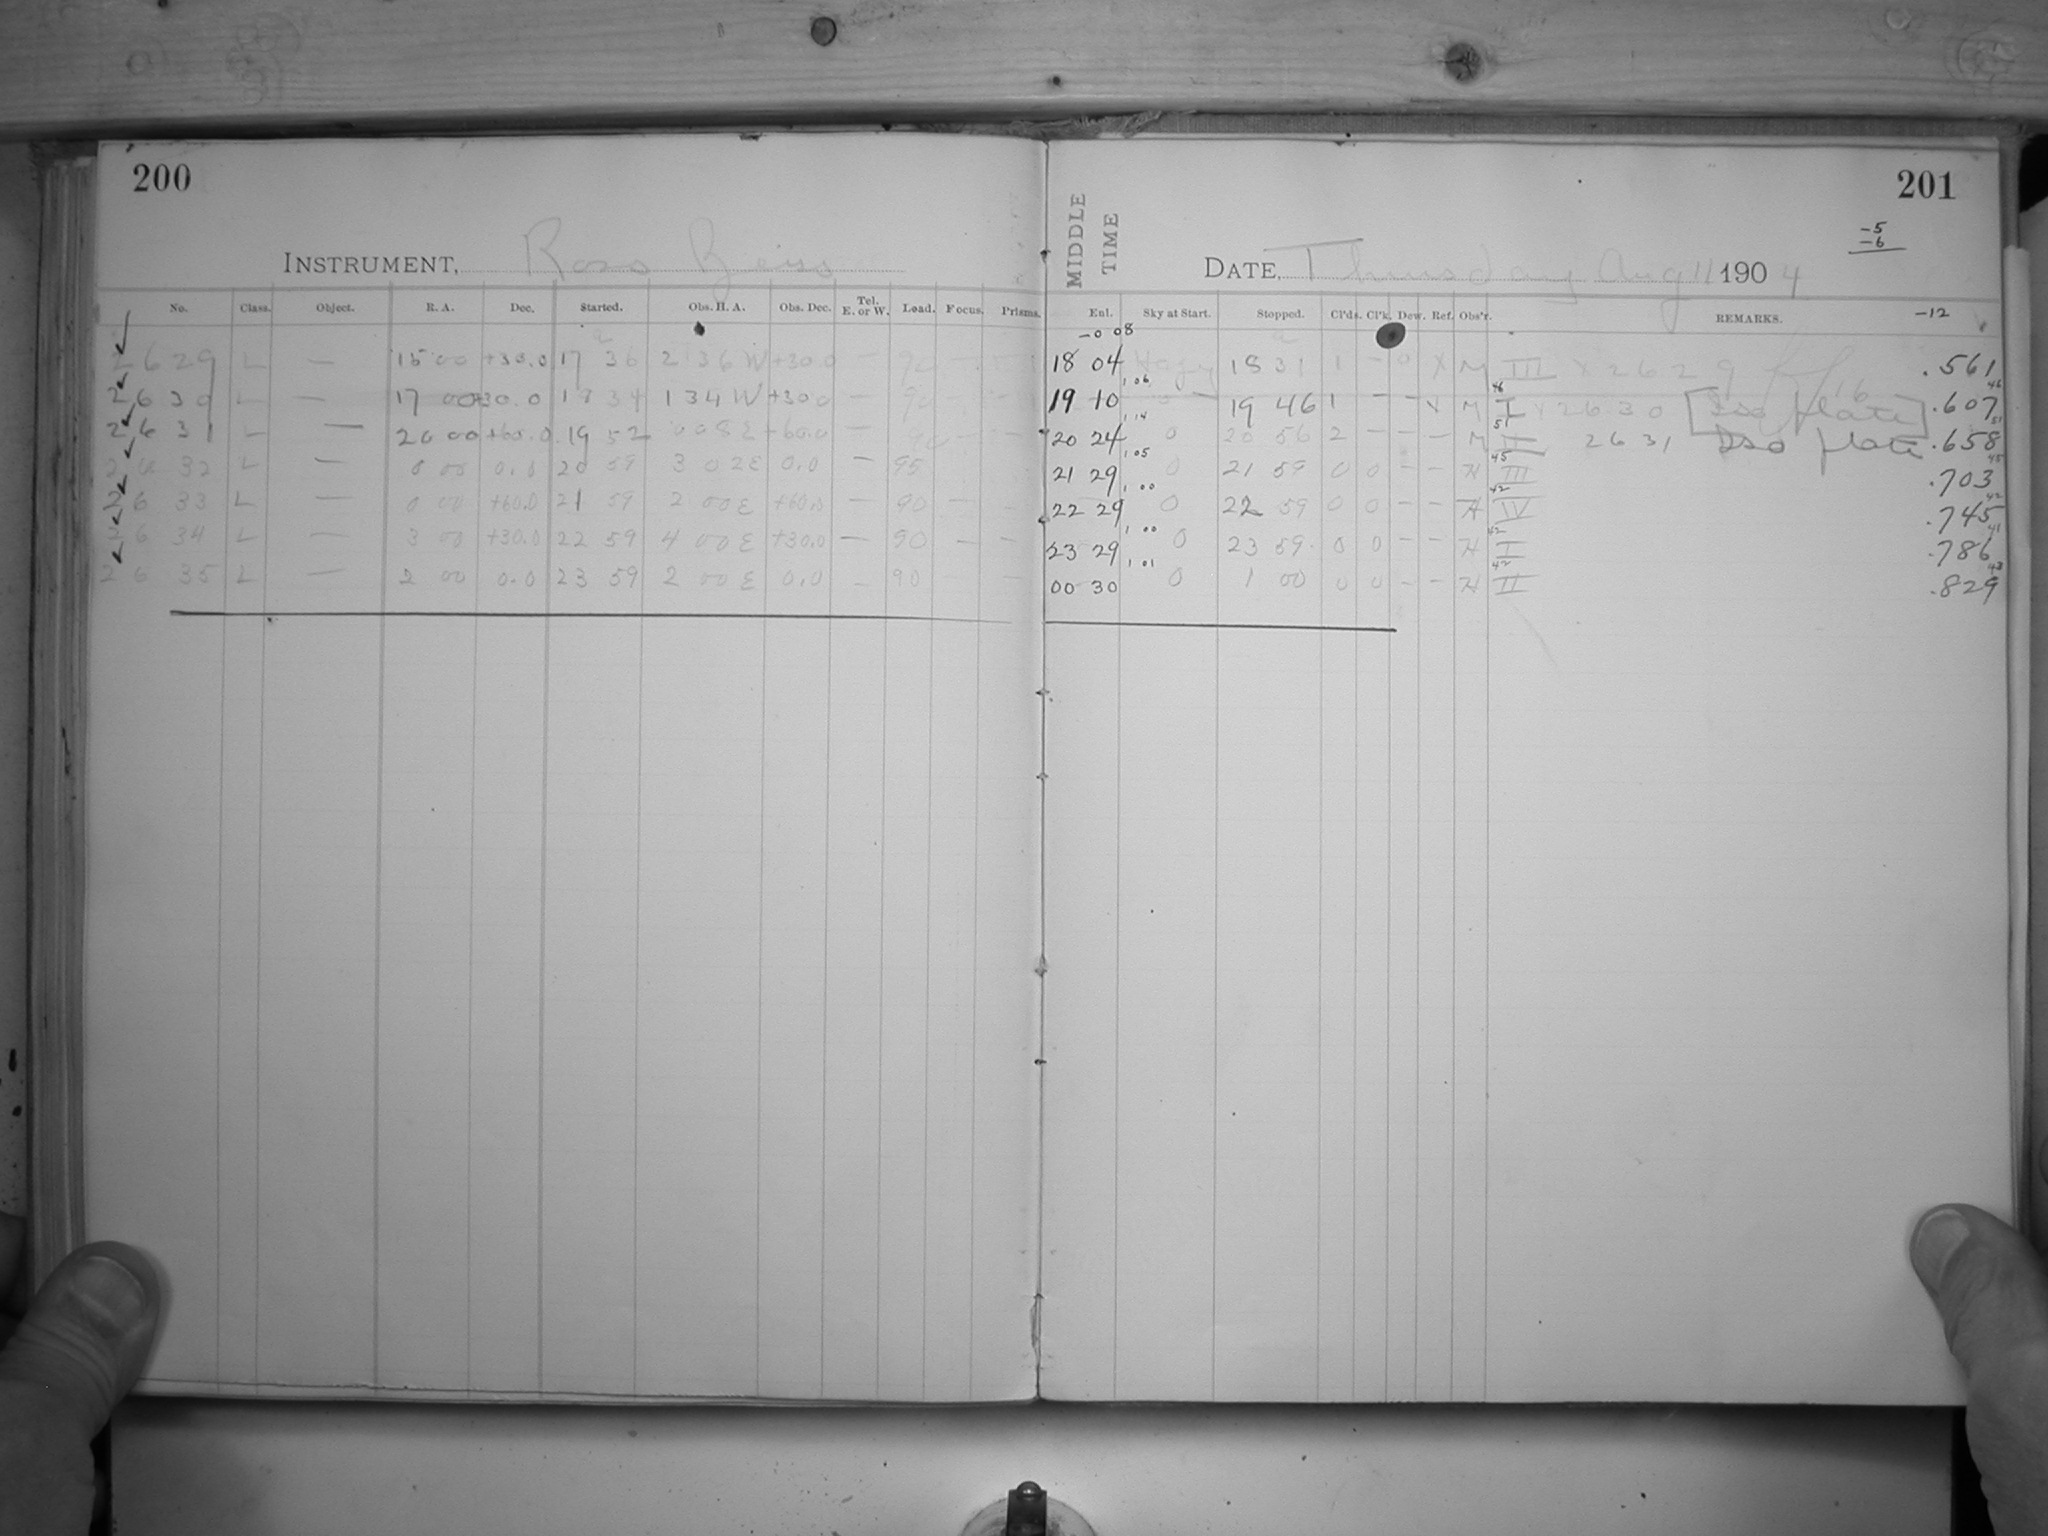 200
INSTRUMENT, Ross Zeiss
No. Class. Object. R. A. Dec. Started. Obs. H. A. Obs. Dec. Tel. E. or W. Load. Focus. Prisms.
2629 L — 15 00 +30.0 17 36 2 36 W +30.0 — 90
2630 L — 17 00 +30.0 18 34 1 34 W +30.0 — 90 — —
2631 L — 20 00 +60.0 19 52 0 08 E +60.0 — 90 — —
2632 L — 0 00 0.0 20 59 3 02 E 0.0 — 95
2633 L — 0 00 +60.0 21 59 2 00 E +60.0 — 90 — —
2634 L — 3 00 +30.0 22 59 4 00 E +30.0 — 90 — —
2635 L — 2 00 0.0 23 59 2 00 E 0.0 — 90 — —
201
-5
-6
-12
MIDDLE TIME
DATE, Thursday Aug 11 1904
Enl. Sky at Start. Stopped. Cl'ds. Cl'k. Dew. Ref. Obs'r. REMARKS.
-0 08
18 04 Hazy 18 31 1 — 0 X M III X 2629 .561
1 06 46 16 46
19 10 0 19 46 1 — — X M I X 2630 [Iso plate] .607
1 14 51 51
20 24 0 20 56 2 — — — M II 2631 Iso plate .658
1 05 45 45
21 29 0 21 59 0 0 — — H III .703
1 00 42 42
22 29 0 22 59 0 0 — — H IV .745
1 00 42 41
23 29 0 23 59 0 0 — — H I .786
1 01 42 43
00 30 0 1 00 0 0 — — H II .829